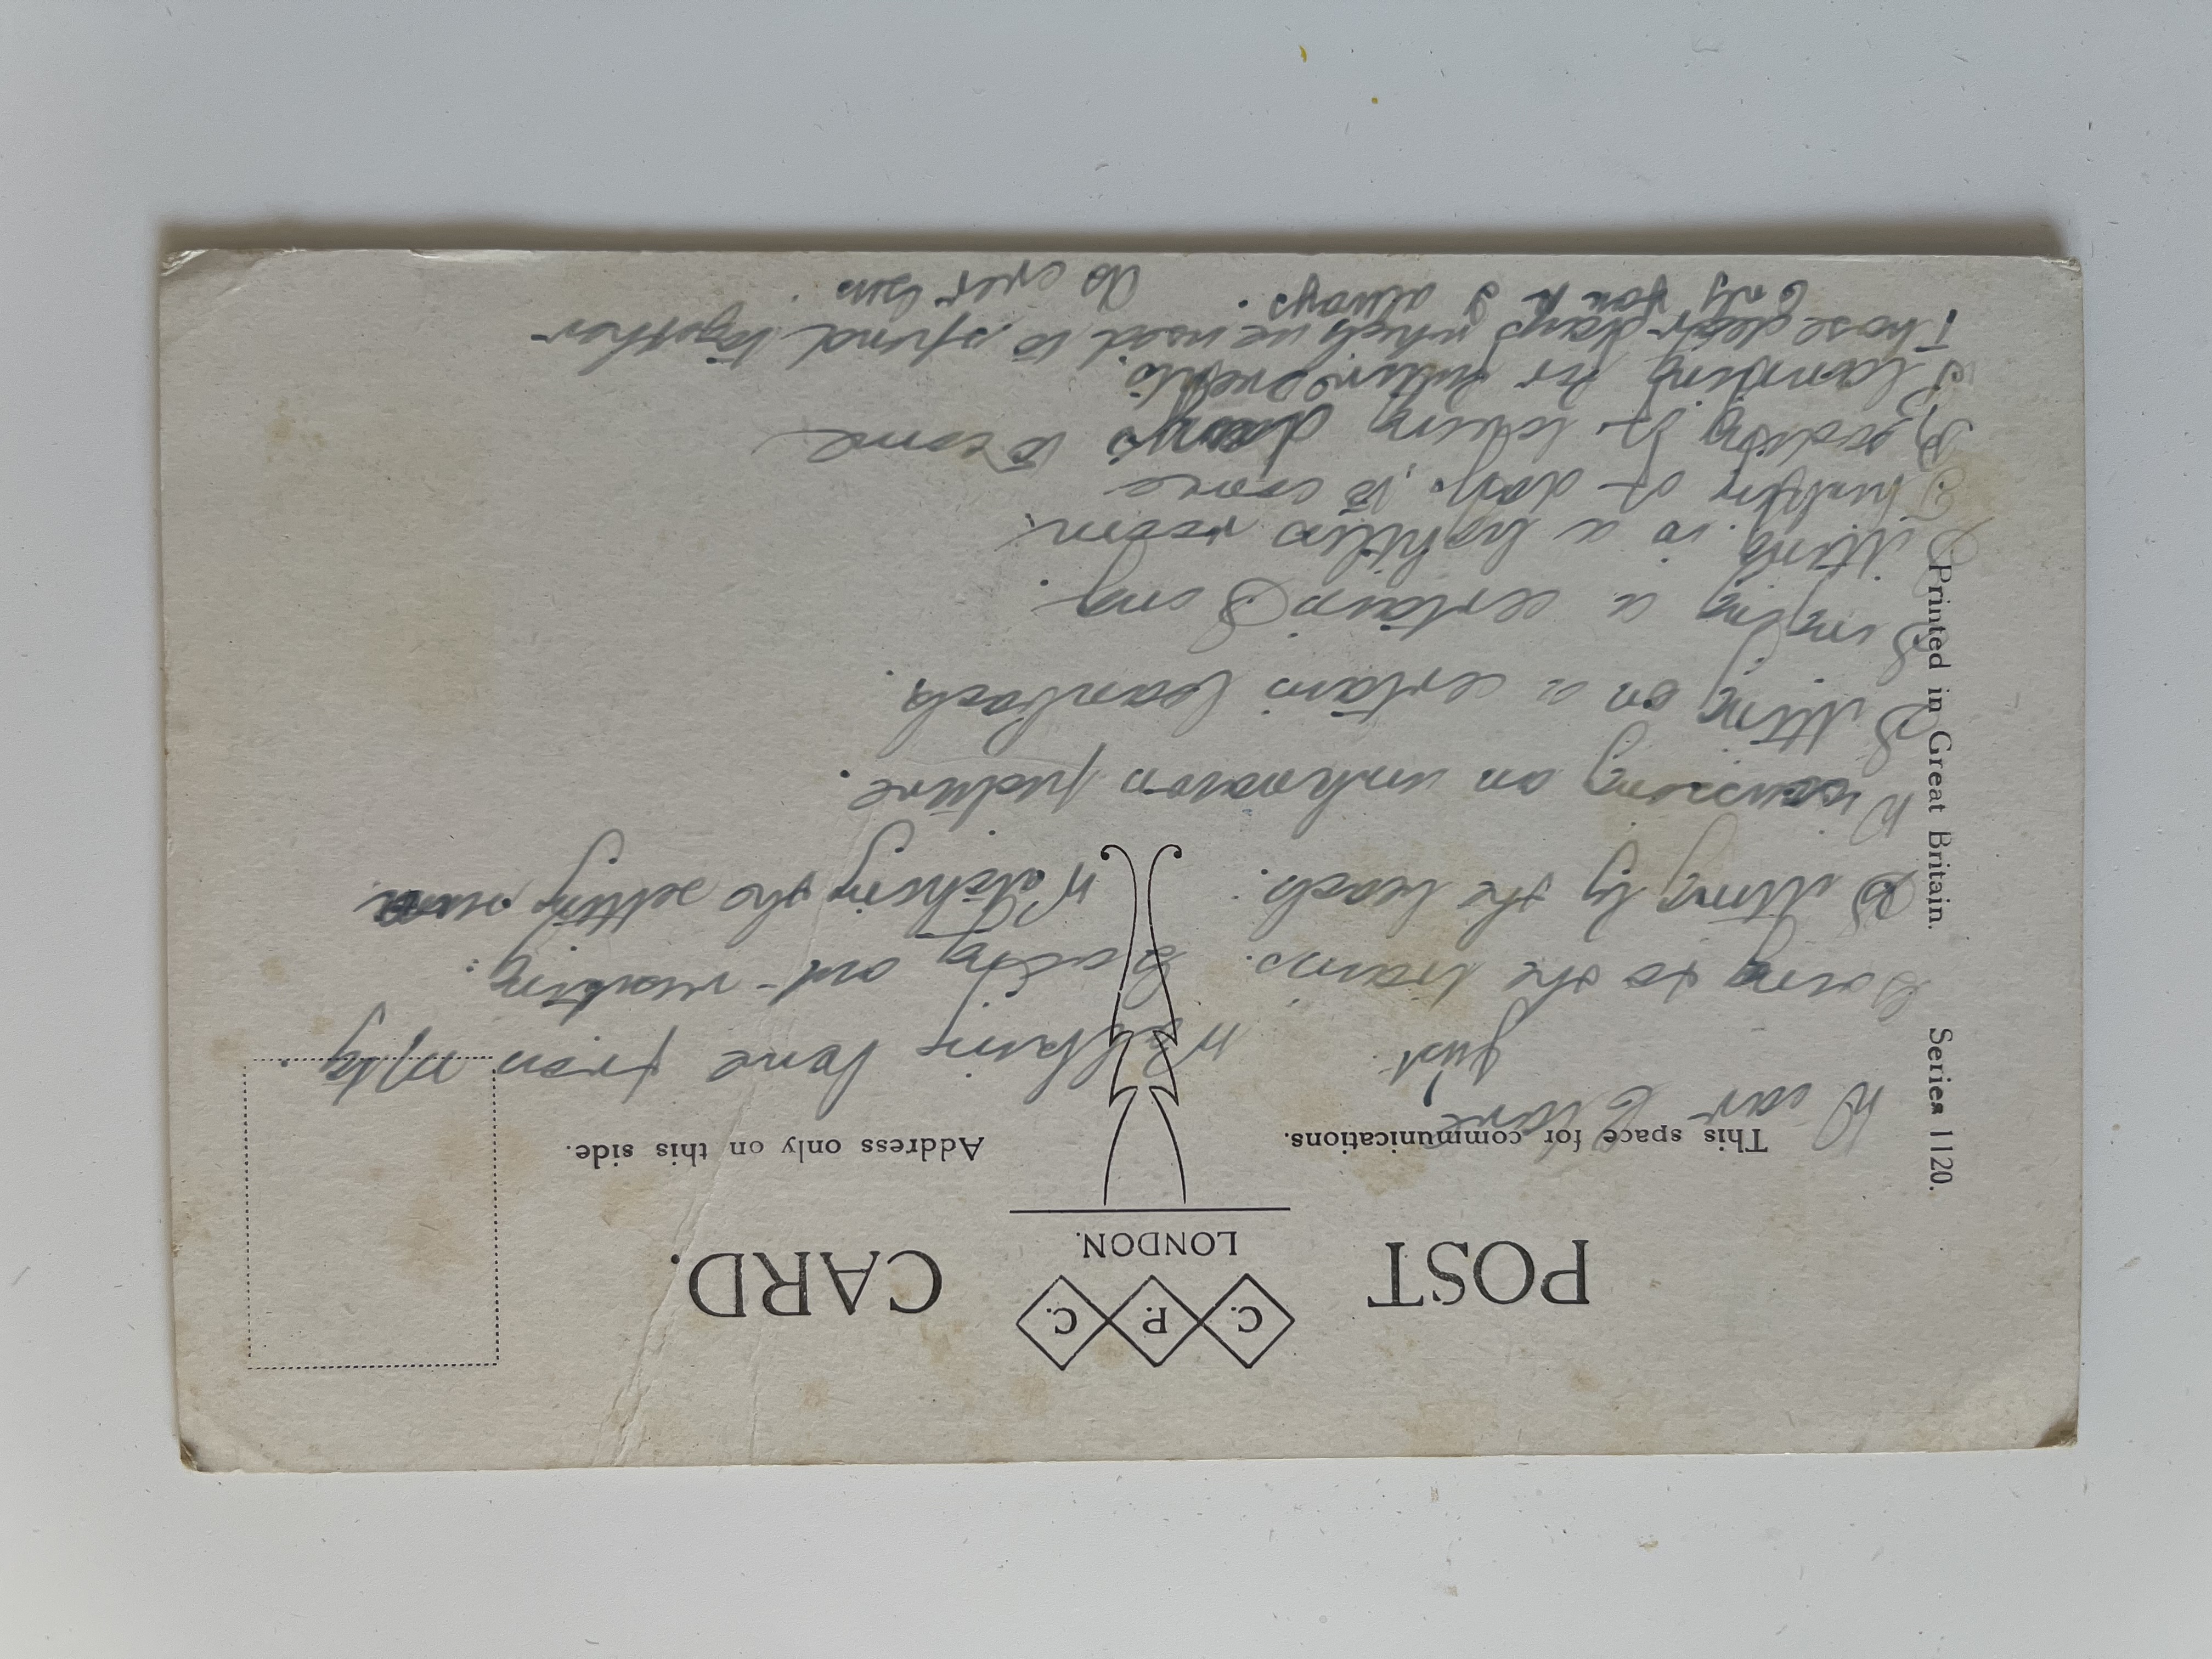 C. P. C.
POST LONDON. CARD.
This space for communications. Address only on this side.
Series 1120.
Printed in Great Britain.
Dear Clare,
Just Walking home from Mtg.
Going to the trains. Going out visiting.
Sitting by the beach. Watching the setting sun
Discussing an unknown picture.
Sitting on a certain leanback.
Singing a certain Song.
Sitting in a lightless room.
Thinking of days to come
Reading of loving days to come
Planning for future events.
Those dear days which we used to spend together
Only You & I always. As ever